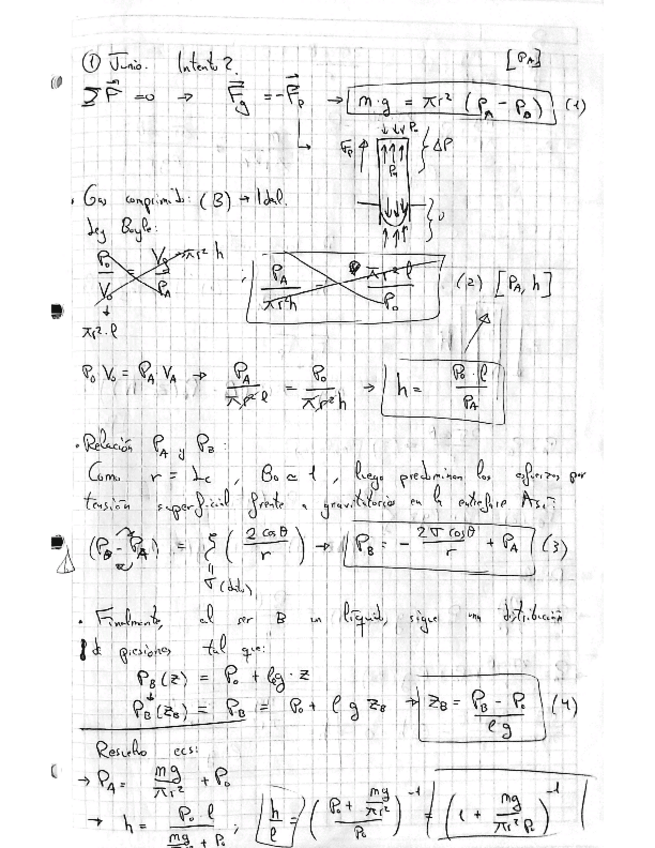 ① Junio. Intento 2. [P_A]
Σ F⃗ = 0 → F⃗_g = -F⃗_p → m·g = πr² (P_A - P_0) (1)
↓↓↓ P_0
F_p ↑ ↑↑↑ } ΔP
P_A
· Gas comprimido: (B) → Ideal.
Ley Boyle:
P_0 / V_0 = V_A / P_A → πr² h
πr²·l
P_A / πr²h = πr²l / P_0 (2) [P_A, h]
P_0 V_0 = P_A V_A → P_A / πr²l = P_0 / πr²h → h = P_0·l / P_A
· Relación P_A y P_B:
Como r = L_c, Bo ≤ 1, luego predominan los esfuerzos por
tensión superficial frente a gravitatorios en la interfase
(P_B - P_A) = ζ (2 cosθ / r) → P_B = - 2σ cosθ / r + P_A (3)
σ (dato)
· Finalmente, al ser B un líquido, sigue una distribución
de presiones tal que:
P_B(z) = P_0 + ρg·z
P_B(z_B) = P_B = P_0 + ρ g z_B → z_B = P_B - P_0 / ρg (4)
Resuelvo ecs:
→ P_A = mg / πr² + P_0
→ h = P_0·l / mg / πr² + P_0 ; h / l = (P_0 + mg / πr² / P_0)⁻¹ = (1 + mg / πr² P_0)⁻¹